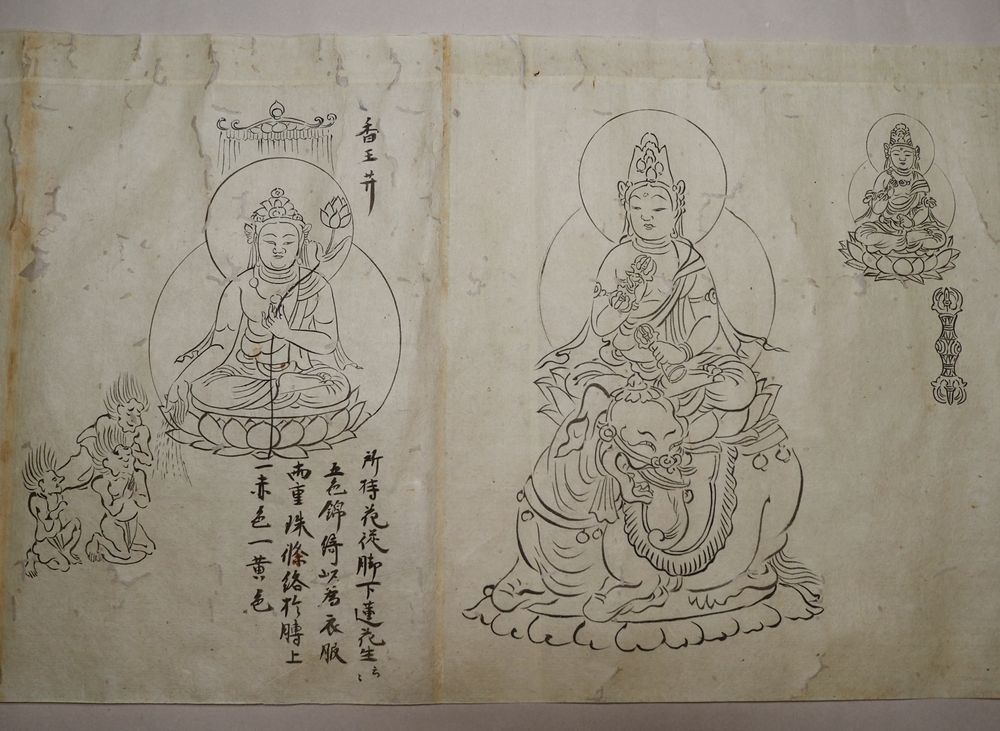 香王菩
所持花従脚下蓮花生云〻
五色錦綺以為衣服
両重珠絛絡於膊上
一赤色一黄色